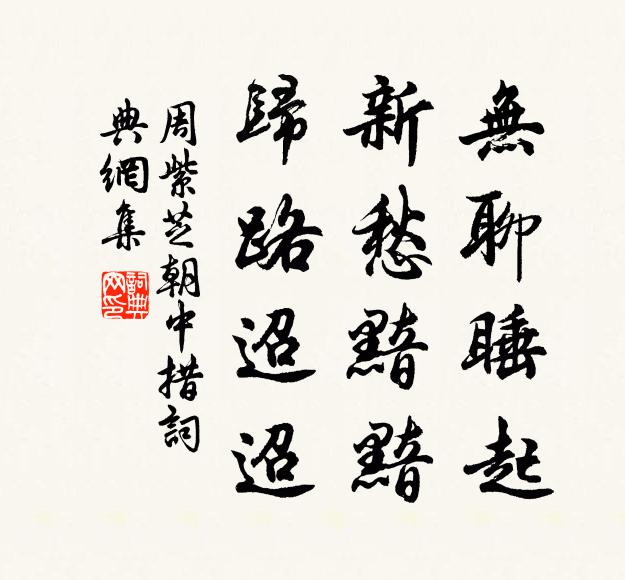 無聊睡起
新愁黯黯
歸路迢迢
周紫芝朝中措詞
典網集
詞典
网印